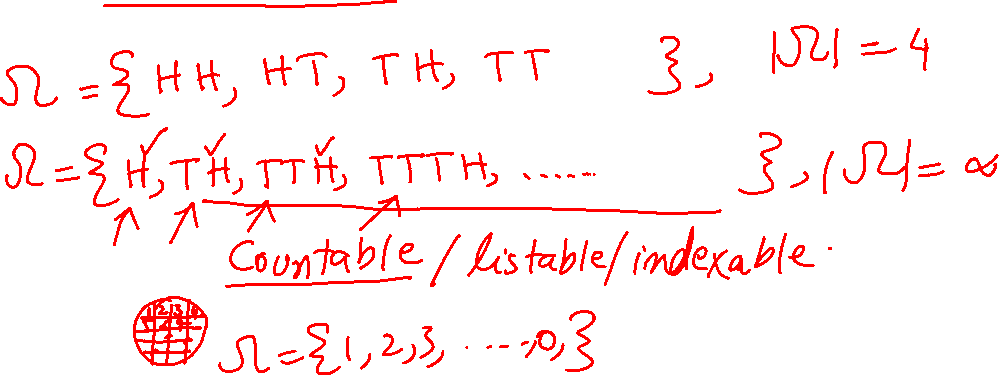 Ω = { HH, HT, TH, TT }, |Ω| = 4
Ω = { H, TH, TTH, TTTH, ...... }, |Ω| = ∞
Countable / listable / indexable.
Ω = {1, 2, 3, ....., 0, }